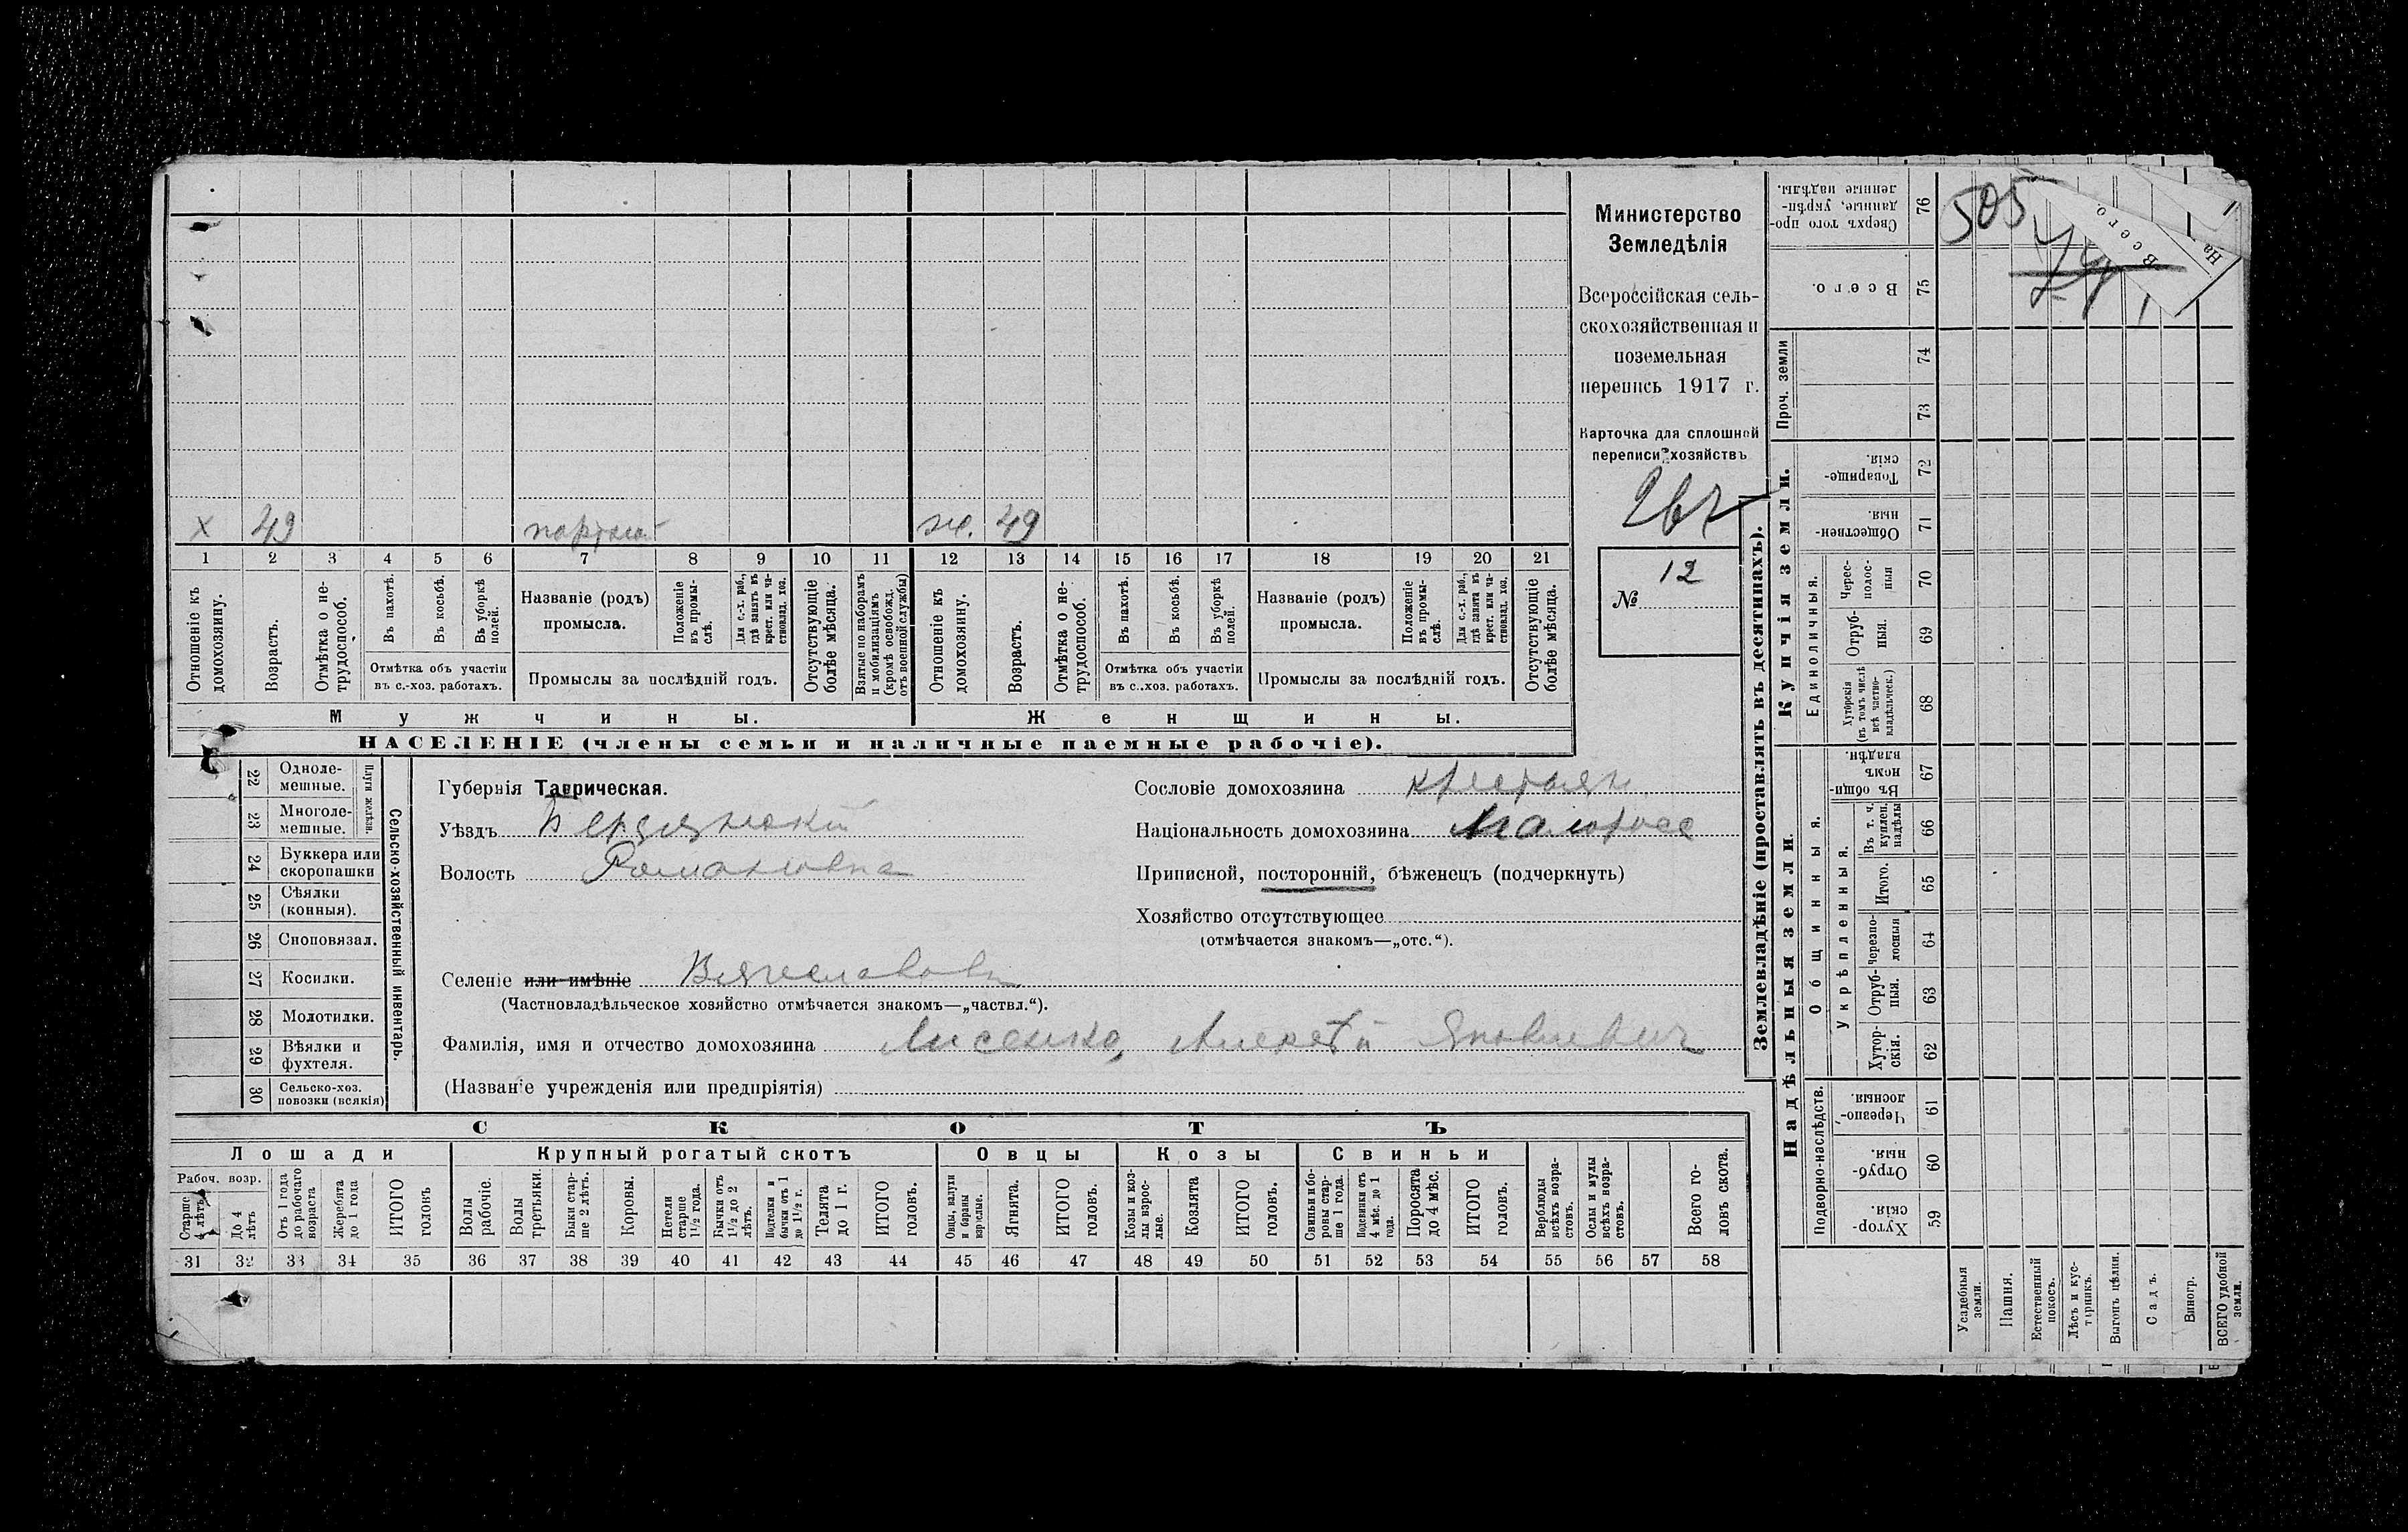 х 49 портной ж. 49
1 2 3 4 5 6 7 8 9 10 11 12 13 14 15 16 17 18 19 20 21
Отношеніе къ домохозяину.
Возрастъ.
Отмѣтка о не-
трудоспособ.
Въ пахотѣ.
Въ косьбѣ.
Въ уборкѣ
полей.
Отмѣтка объ участіи
въ с.-хоз. работахъ.
Названіе (родъ)
промысла.
Положеніе
въ промы-
слѣ.
Для с.-х. раб.,
гдѣ занятъ въ
крест. или ча-
стновлад. хоз.
Промыслы за послѣдній годъ.
Отсутствующіе
болѣе мѣсяца.
Взятые по наборамъ
и мобилизаціямъ
(кромѣ освобожд.
отъ военной службы)
Отношеніе къ
домохозяину.
Возрастъ.
Отмѣтка о не-
трудоспособ.
Въ пахотѣ.
Въ косьбѣ.
Въ уборкѣ
полей.
Отмѣтка объ участіи
въ с.-хоз. работахъ.
Названіе (родъ)
промысла.
Положеніе
въ промы-
слѣ.
Для с.-х. раб.,
гдѣ занята въ
крест. или ча-
стновлад. хоз.
Промыслы за послѣдній годъ.
Отсутствующіе
болѣе мѣсяца.
Мужчины.
Женщины.
НАСЕЛЕНІЕ (члены семьи и наличные наемные рабочіе).
Министерство
Земледѣлія
Всероссійская сель-
скохозяйственная и
поземельная
перепись 1917 г.
Карточка для сплошной
переписи хозяйствъ
12
№
22 Одноле-
мешные.
23 Многоле-
мешные.
Плуги желѣзн.
24 Буккера или
скоропашки
25 Сѣялки
(конныя).
26 Сноповязал.
27 Косилки.
28 Молотилки.
29 Вѣялки и
фухтеля.
30 Сельско-хоз.
повозки (всякія)
Сельско-хозяйственный инвентарь.
Губернія Таврическая.
Уѣздъ Бердянскій
Волость Романовка
Селеніе или имѣніе
(Частновладѣльческое хозяйство отмѣчается знакомъ—„частвл.“).
Фамилія, имя и отчество домохозяина Лисенко, Алексѣй Яковлевич
(Названіе учрежденія или предпріятія)
Сословіе домохозяина крестьян.
Національность домохозяина Малоросс
Приписной, посторонній, бѣженецъ (подчеркнуть)
Хозяйство отсутствующее
(отмѣчается знакомъ—„отс.“).
СКОТЪ
Лошади
Рабоч. возр.
Старше
4 лѣтъ
До 4
лѣтъ
Отъ 1 года
до рабочаго
возраста
Жеребята
до 1 года
ИТОГО
головъ
Крупный рогатый скотъ
Волы
рабочіе.
Волы
третьяки.
Быки стар-
ше 2 лѣтъ.
Коровы.
Нетели
старше
1½ года.
Бычки отъ
1½ до 2
лѣтъ.
Подтелки и
бычки отъ 1
до 1½ г.
Телята
до 1 г.
ИТОГО
головъ.
Овцы
Овцы, валухи
и бараны
взрослые.
Ягнята.
ИТОГО
головъ.
Козы
Козы и коз-
лы взрос-
лые.
Козлята
ИТОГО
головъ.
Свиньи
Свиньи и бо-
ровы стар-
ше 1 года.
Подсвинки отъ
4 мѣс. до 1
года.
Поросята
до 4 мѣс.
ИТОГО
головъ.
Верблюды
всѣхъ возра-
стовъ.
Ослы и мулы
всѣхъ возра-
стовъ.
Всего го-
ловъ скота.
31 32 33 34 35 36 37 38 39 40 41 42 43 44 45 46 47 48 49 50 51 52 53 54 55 56 57 58
Землевладѣніе (проставлять въ десятинахъ).
Купчія земли.
Сверхъ того про-
данные, укрѣп-
ленные надѣлы.
76
Всего.
75
Проч. земли
74
73
Товарище-
скія.
72
Обществен-
ныя.
71
Единоличныя.
Черес-
полос-
ныя
70
Отруб-
ныя.
69
Хуторскія
(въ томъ числѣ
всѣ частно-
владѣльческ.)
68
Надѣльныя земли.
Общинныя.
Въ общи-
номъ
владѣн.
67
Укрѣпленныя.
Въ т. ч.
куплен.
надѣлы
66
Итого.
65
Черезпо-
лосныя
64
Отруб-
ныя.
63
Хутор-
скія.
62
Подворно-наслѣдств.
Черезпо-
лосныя.
61
Отруб-
ныя.
60
Хутор-
скія.
59
Усадебныя
земли.
Пашня.
Естественный
покосъ.
Лѣсъ и кус-
тарникъ.
Выгонъ цѣлин.
Садъ.
Виногр.
ВСЕГО удобной
земли.
505
Всего.
На
1